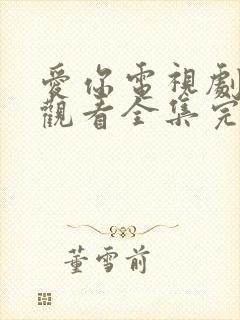 愛你電視劇
觀看全集完
董雪前